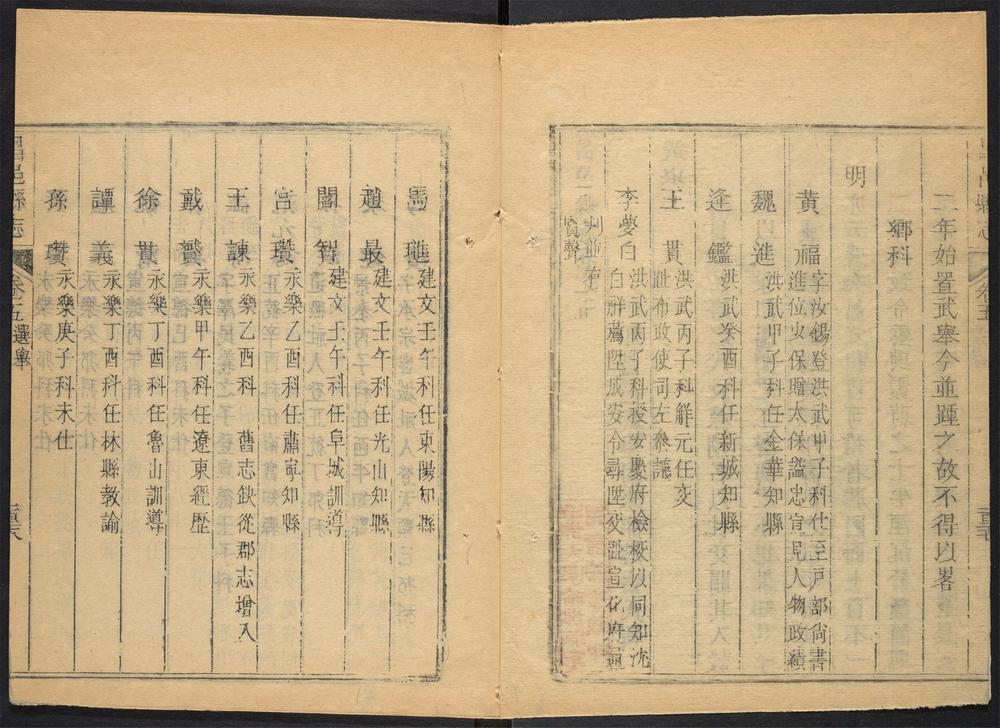 二年始置武舉今並踵之故不得以畧
鄉科
明
黄福字汝錫登洪武甲子科仕至戸部尚書
進位少保贈太保謚忠宣見人物政績
魏進洪武甲子科任金華知縣
逄鑑洪武癸酉科任新城知縣
王貫洪武丙子科觧元任交
趾布政使司左叅議
李夢白洪武丙子科授安慶府檢校以同知沈
白群薦陞成安令尋陞交趾宣化府通
判並有
賢聲
昌邑縣志
卷五
馬璡建文壬午科任東陽知縣
趙最建文壬午科任光山知縣
關智建文壬午科任阜城訓導
宫瓚永樂乙酉科任肅寧知縣
王諫永樂乙酉科 舊志缺從郡志增入
戴贇永樂甲午科任遼東經歷
徐貫永樂丁酉科任魯山訓導
譚義永樂丁酉科任林縣教諭
孫瓚永樂庚子科未仕
昌邑縣志
卷五選舉